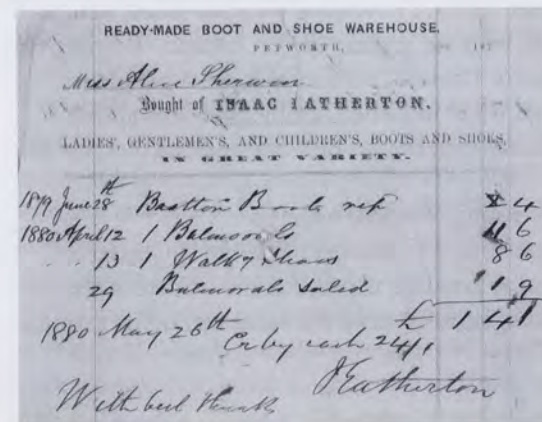 READY-MADE BOOT AND SHOE WAREHOUSE,
PETWORTH, 187
Miss Alice Sherwin
Bought of ISAAC EATHERTON.
LADIES', GENTLEMEN'S, AND CHILDREN'S, BOOTS AND SHOES,
IN GREAT VARIETY.
1879 June 28th Button Boots rep 4
1880 April 12 1 Balmorals 6
13 1 Walkg Shoes 8 6
29 Balmorals soled 1 9
1880 May 26th £ 1 4 1
Cr by cash 24/1
With best thanks
I Eatherton